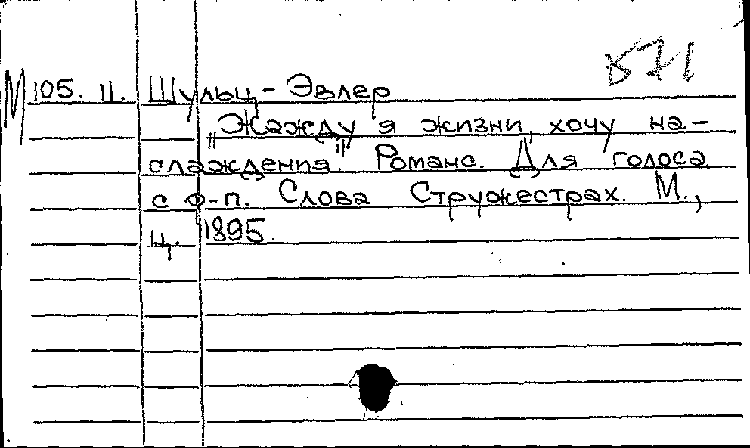 571
М 105. II. Шульц - Эвлер
„Жажду я жизни, хочу на-
слаждения" Романс. Для голоса
с ф-п. Слова Стружестрах. М.,
ц. 1895.